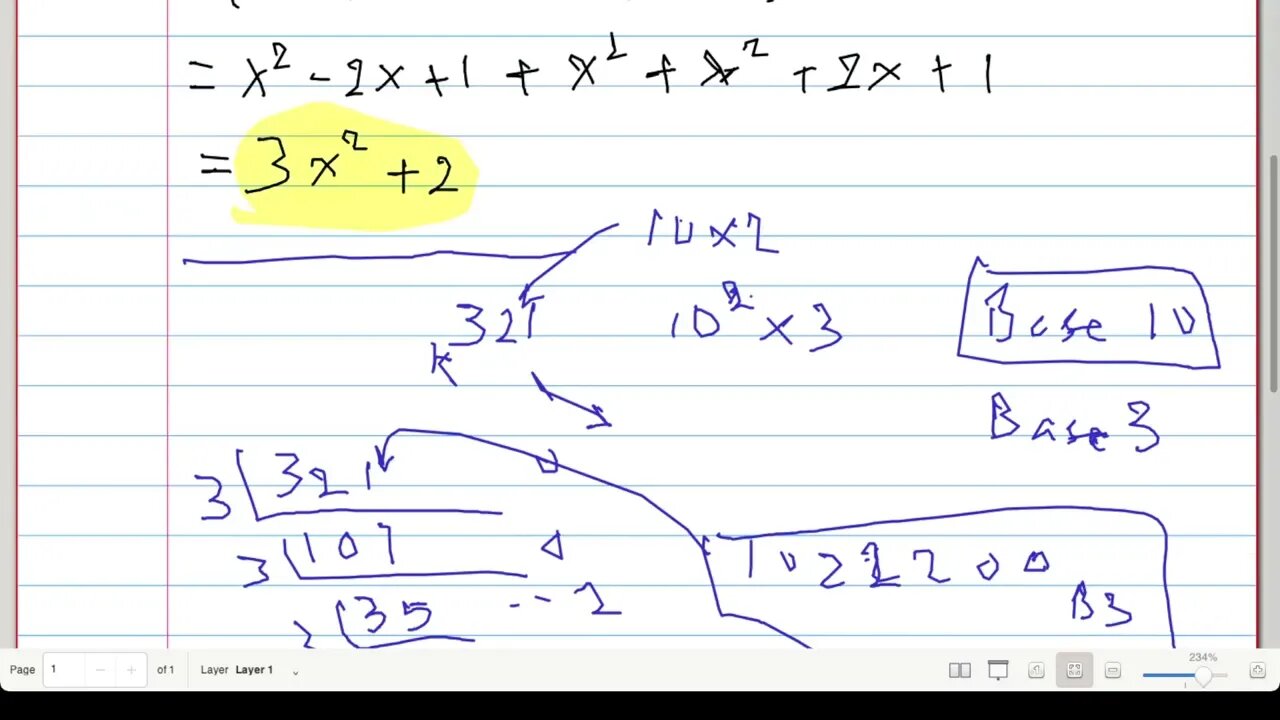 = x² - 2x + 1 + x² + x² + 2x + 1
= 3x² + 2
10 x 2
321
10² x 3
Base 10
Base 3
3 321
3 107
35 -- 2
1022200
B3
Page 1 of 1 Layer Layer 1
234%